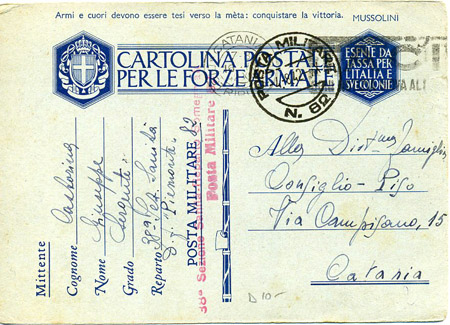 Armi e cuori devono essere tesi verso la mèta: conquistare la vittoria. MUSSOLINI
CARTOLINA POSTALE
PER LE FORZE ARMATE
ESENTE DA
TASSA PER
L'ITALIA E
SVE COLONIE
CATANI
POSTA MILITARE
N. 82
Mittente
Cognome
Nome Giuseppe
Grado Sergente
Reparto 38ª Sez. Sanità
d. f. "Piemonte"
POSTA MILITARE 82
38ª Sezione
Posta Militare
Alla Dist.ma Famiglia
Consiglio - Pigo
Via Campisano, 15
Catania
D 10-